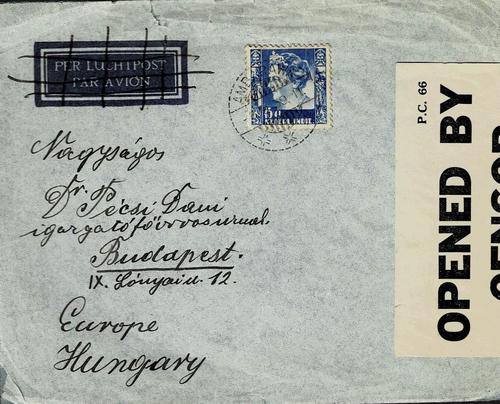 PER LUCHTPOST
PAR AVION
NEDERL. INDIE
P.C. 66
OPENED BY
CENSOR
Nagyságos
Dr. Pécsi Dani
igazgatófőorvosúrnak
Budapest.
IX. Lónyai u. 12.
Europe
Hungary